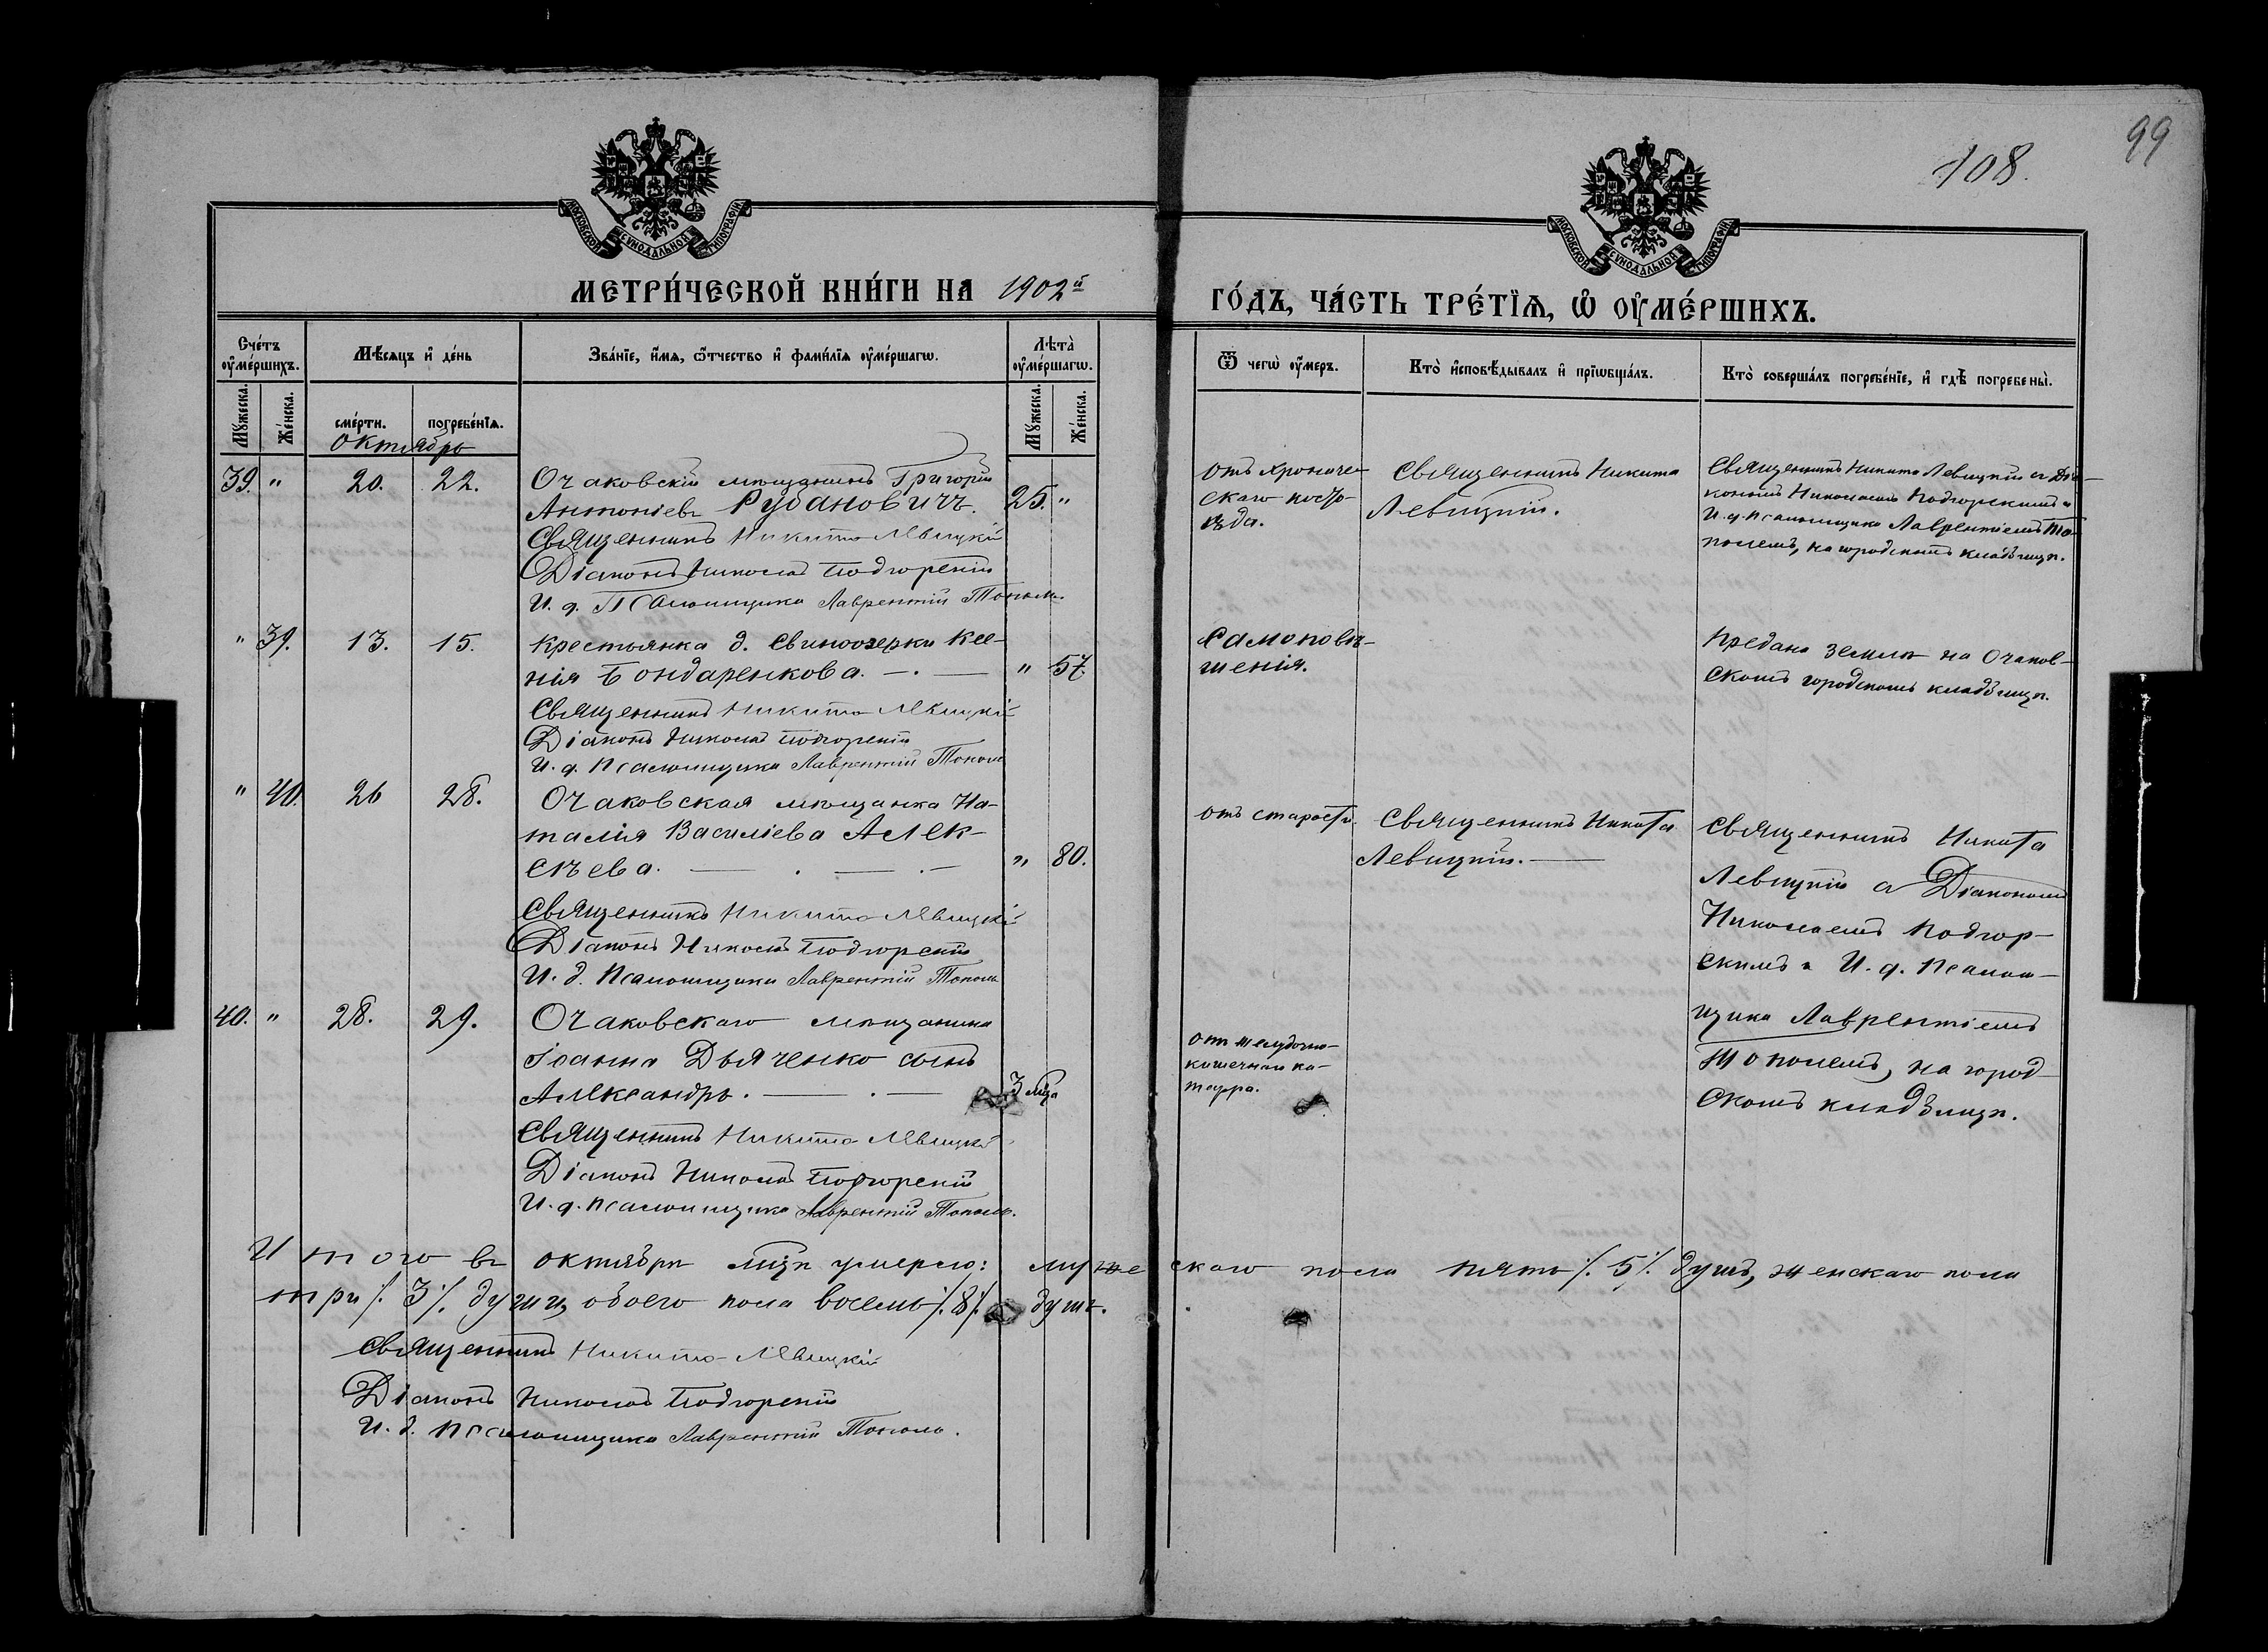 99
108.
МОСКОВСКОЙ СУНОДАЛЬНОЙ ТИПОГРАФІИ
МОСКОВСКОЙ СУНОДАЛЬНОЙ ТИПОГРАФІИ
МЕТРИ́ЧЕСКОЙ КНИ́ГИ НА 1902й
ГО́ДЪ, ЧА́СТЬ ТРЕ́ТІѦ, Ѡ҆ ОУ҆МЕ́РШИХЪ.
Сче́тъ оу҆ме́ршихъ.
Мѣ́сяцъ и҆ де́нь
Зва́нїе, и҆́мѧ, ѻ҆́тчество и҆ фами́лїѧ оу҆ме́ршагѡ.
Лѣта̀ оу҆ме́ршагѡ.
Ѿ чегѡ̀ оу҆́меръ.
Кто̀ и҆сповѣ́дывалъ и҆ прїѡбща́лъ.
Кто̀ соверша́лъ погребе́нїе, и҆ гдѣ̀ погребены̀.
Му́жеска. Же́нска.
сме́рти. погребе́нїѧ.
Му́жеска. Же́нска.
Октябрь
39. " 20. 22. Очаковскій мѣщанинъ Григорій
Антоніевъ Рубановичъ. 25. "
Священникъ Никита Левицкій
Діаконъ Николай Подгорскій
И. д. Псаломщика Лаврентій Тополь.
отъ хрониче-
скаго
Священникъ Никита
Левицкій.
Священникъ Никита Левицкій съ Діа-
кономъ Николаемъ Подгорскимъ и
И. д. псаломщика Лаврентіемъ То-
полемъ, на городскомъ кладбищѣ.
" 39. 13. 15. Крестьянка д. Свиноозерки Ксе-
нія Бондаренкова. " 57.
Священникъ Никита Левицкій
Діаконъ Николай Подгорскій
И. д. Псаломщика Лаврентій Тополь
Самоповѣ-
шенія.
Предана землѣ на Очаков-
скомъ городскомъ кладбищѣ.
" 40. 26 28. Очаковская мѣщанка На-
талія Василіева Алек-
сѣева. " 80.
Священникъ Никита Левицкій
Діаконъ Николай Подгорскій
И. д. Псаломщика Лаврентій Тополь
отъ старости.
Священникъ Никита
Левицкій.
Священникъ Никита
Левицкій съ Діакономъ
Николаемъ Подгор-
скимъ и И. д. Псалом-
щика Лаврентіемъ
Тополемъ, на город-
скомъ кладбищѣ.
40. " 28. 29. Очаковскаго мѣщанина
Іоанна Дьяченко сынъ
Александръ. 3 мѣца
Священникъ Никита Левицкій
Діаконъ Николай Подгорскій
И. д. Псаломщика Лаврентій Тополь.
отъ желудочно-
кишечнаго ка-
тарра.
Итого въ октябрѣ мцѣ умерло: мужескаго пола пять ٪ 5 ٪ душъ, женскаго пола
три ٪ 3 ٪ души, обоего пола восемь ٪ 8 ٪ душъ.
Священникъ Никита Левицкій
Діаконъ Николай Подгорскій
И. д. Псаломщика Лаврентій Тополь.